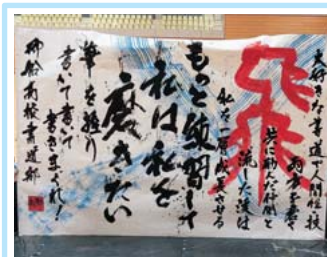 大好きな書道で人間性・技
共に励んだ仲間と
流した涙は
私を一層成長させる
もっと練習して
私は私を
磨きたい
筆を握り
書いて書いて
書きまくれ!
御船高校書道部